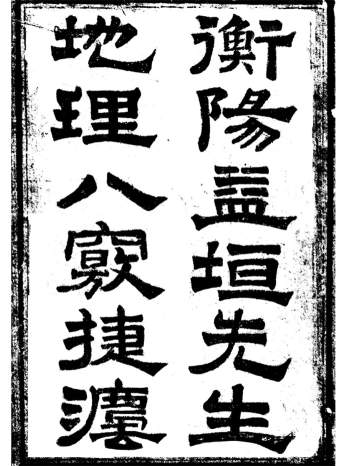 衡陽益垣先生
地理八竅捷灋